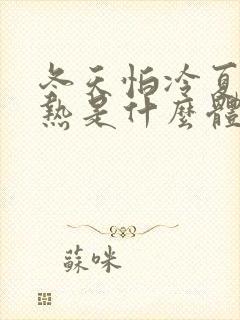 冬天怕冷夏
熱是什麼體
蘇咪